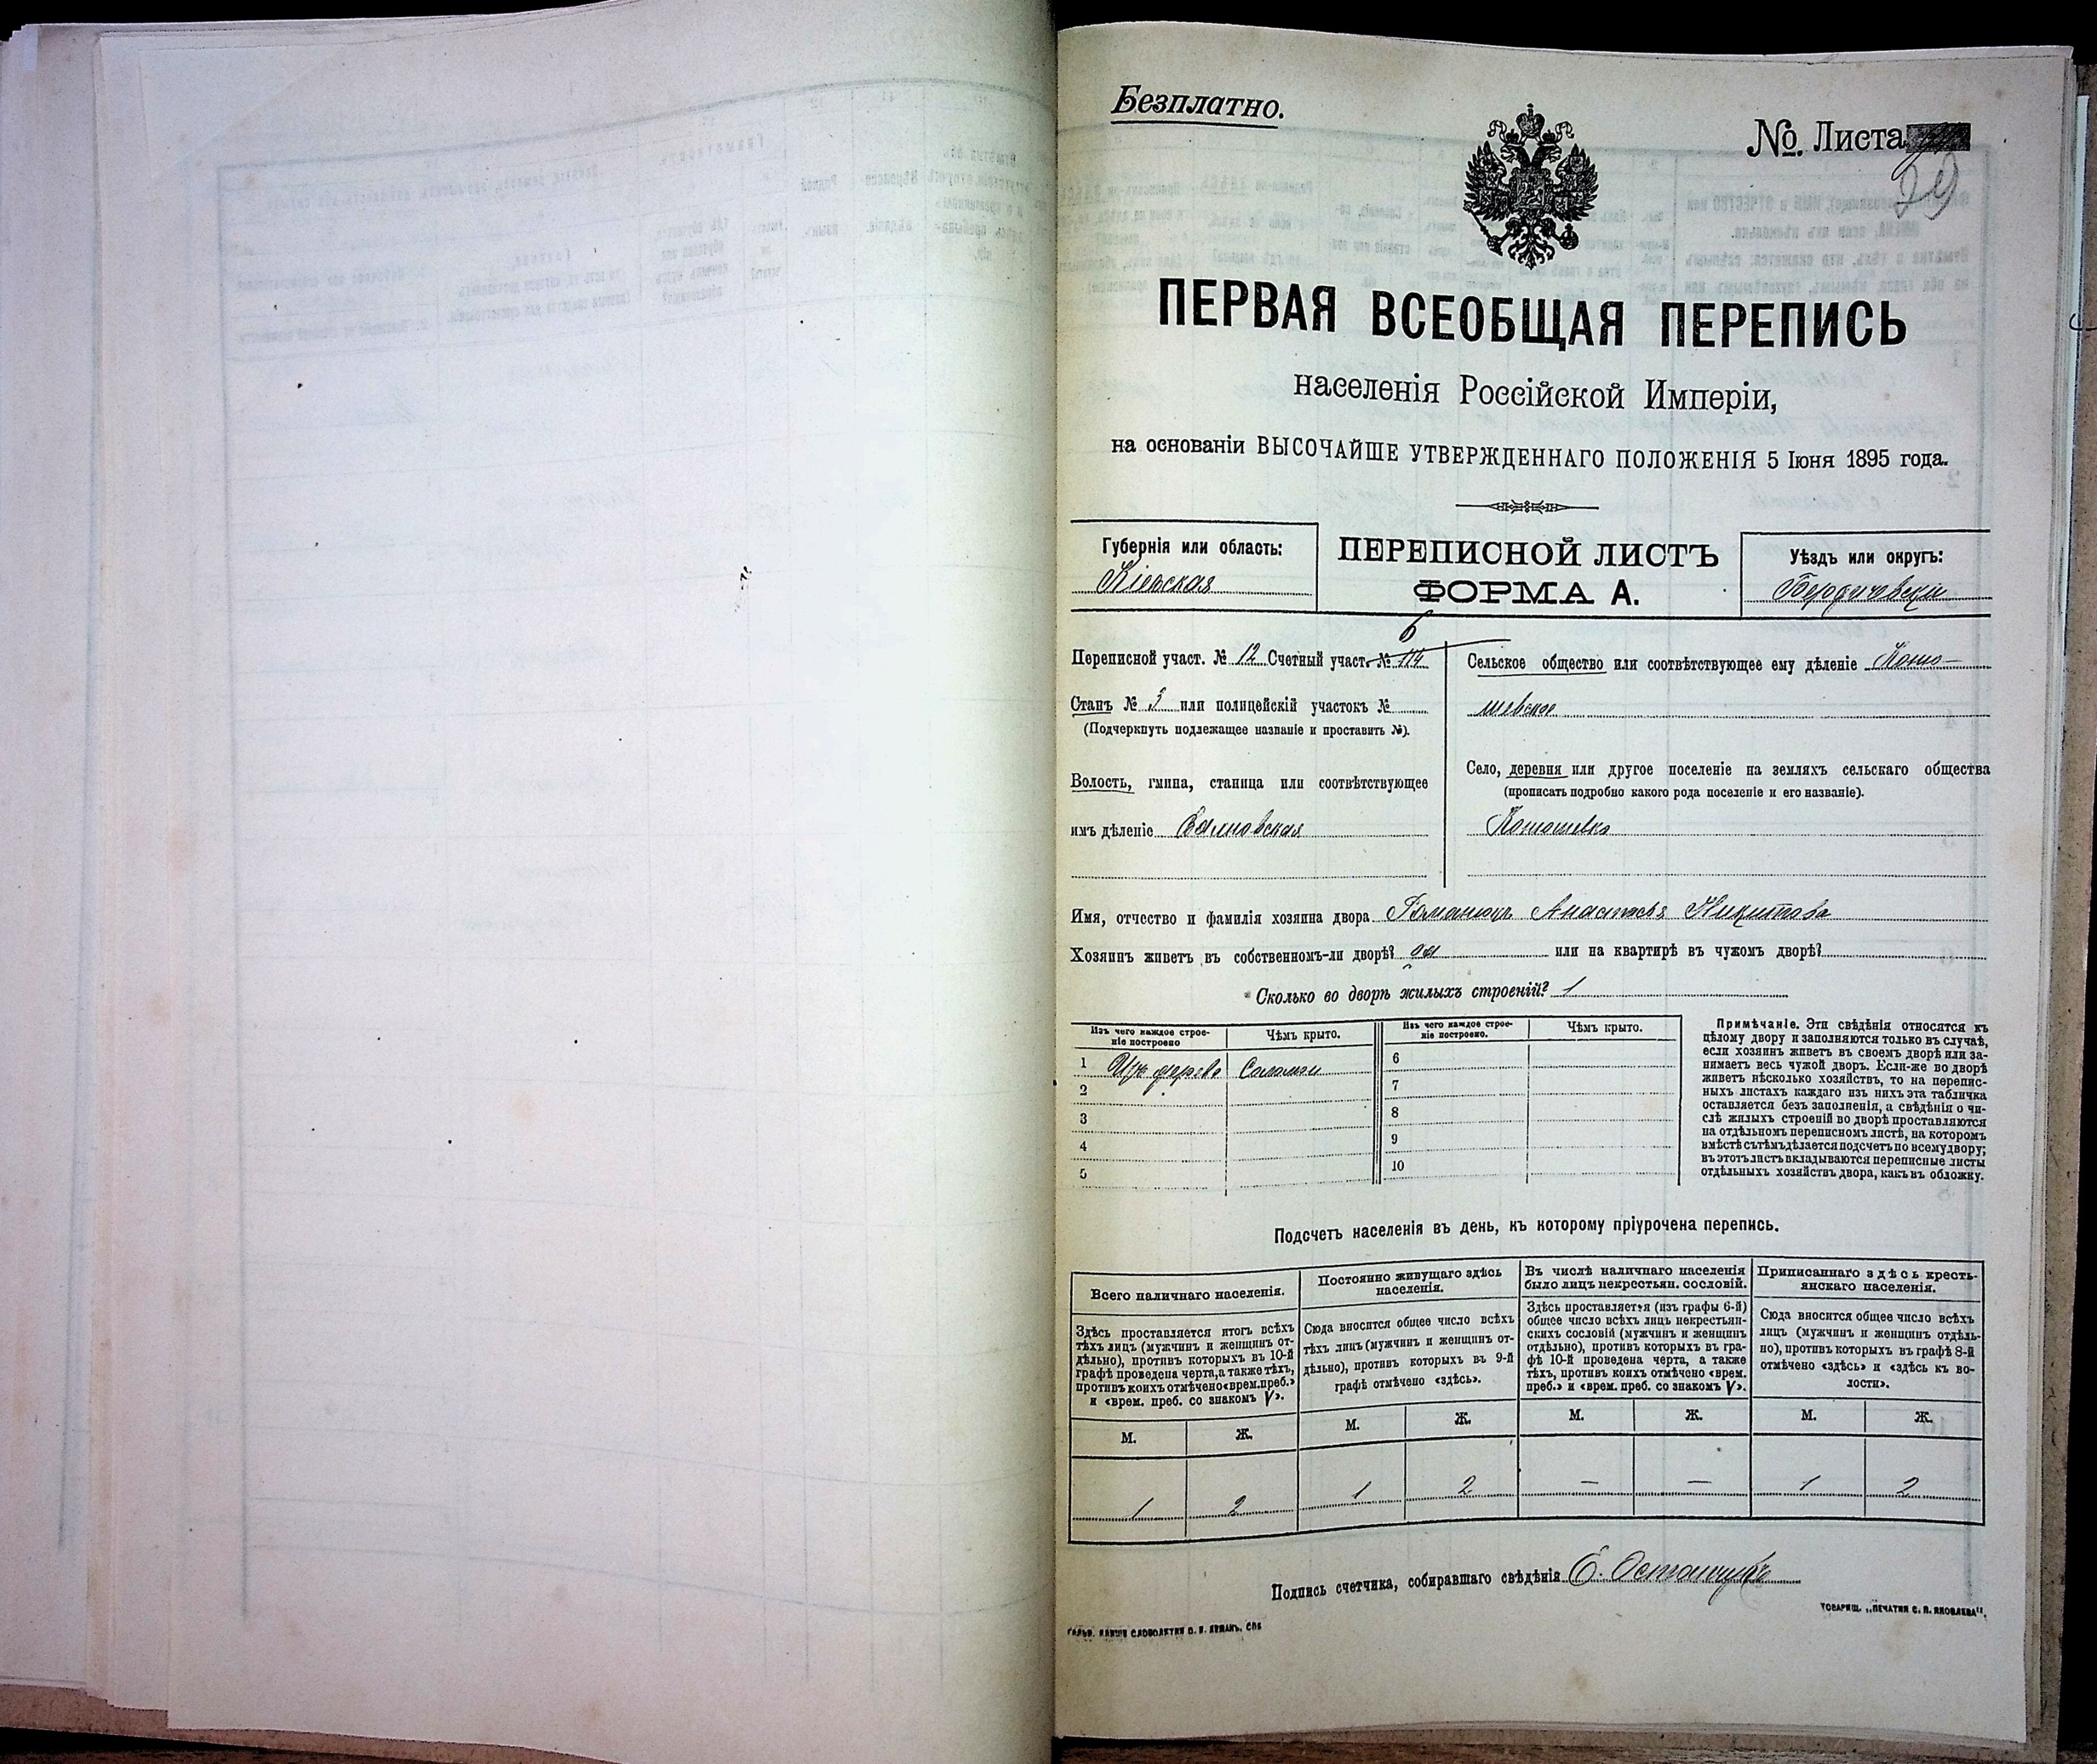 Безплатно.
№ Листа
29
ПЕРВАЯ ВСЕОБЩАЯ ПЕРЕПИСЬ
населенія Россійской Имперіи,
на основаніи ВЫСОЧАЙШЕ УТВЕРЖДЕННАГО ПОЛОЖЕНІЯ 5 Іюня 1895 года.
Губернія или область:
Кіевская
ПЕРЕПИСНОЙ ЛИСТЪ
ФОРМА А.
Уѣздъ или округъ:
Бердичевскій
6
Переписной участ. № 12 Счетный участ. № 114
Станъ № 3 или полицейскій участокъ №
(Подчеркнуть подлежащее названіе и проставить №).
Волость, гмина, станица или соотвѣтствующее
имъ дѣленіе
Сельское общество или соотвѣтствующее ему дѣленіе Кошо-
шевское
Село, деревня или другое поселеніе на земляхъ сельскаго общества
(прописать подробно какого рода поселеніе и его названіе).
Имя, отчество и фамилія хозяина двора Романюкъ Анастасья Никитова
Хозяинъ живетъ въ собственномъ-ли дворѣ? да или на квартирѣ въ чужомъ дворѣ?
Сколько во дворѣ жилыхъ строеній? 1
Изъ чего каждое строе-
ніе построено
Чѣмъ крыто.
1 Изъ дерева Соломы
2
3
4
5
Изъ чего каждое строе-
ніе построено.
Чѣмъ крыто.
6
7
8
9
10
Примѣчаніе. Эти свѣдѣнія относятся къ
цѣлому двору и заполняются только въ случаѣ,
если хозяинъ живетъ въ своемъ дворѣ или за-
нимаетъ весь чужой дворъ. Если-же во дворѣ
живетъ нѣсколько хозяйствъ, то на перепис-
ныхъ листахъ каждаго изъ нихъ эта табличка
оставляется безъ заполненія, а свѣдѣнія о чи-
слѣ жилыхъ строеній во дворѣ проставляются
на отдѣльномъ переписномъ листѣ, на которомъ
вмѣстѣ съ тѣмъ дѣлается подсчетъ по всему двору;
въ этотъ листъ вкладываются переписные листы
отдѣльныхъ хозяйствъ двора, какъ въ обложку.
Подсчетъ населенія въ день, къ которому пріурочена перепись.
Всего наличнаго населенія.
Здѣсь проставляется итогъ всѣхъ
тѣхъ лицъ (мужчинъ и женщинъ от-
дѣльно), противъ которыхъ въ 10-й
графѣ проведена черта, а также тѣхъ,
противъ коихъ отмѣчено «врем. преб.»
и «врем. преб. со знакомъ V».
М. Ж.
1 2
Постоянно живущаго здѣсь
населенія.
Сюда вносится общее число всѣхъ
тѣхъ лицъ (мужчинъ и женщинъ от-
дѣльно), противъ которыхъ въ 9-й
графѣ отмѣчено «здѣсь».
М. Ж.
1 2
Въ числѣ наличнаго населенія
было лицъ некрестьян. сословій.
Здѣсь проставляется (изъ графы 6-й)
общее число всѣхъ лицъ некрестьян-
скихъ сословій (мужчинъ и женщинъ
отдѣльно), противъ которыхъ въ гра-
фѣ 10-й проведена черта, а также
тѣхъ, противъ коихъ отмѣчено «врем.
преб.» и «врем. преб. со знакомъ V».
М. Ж.
— —
Приписаннаго здѣсь кресть-
янскаго населенія.
Сюда вносится общее число всѣхъ
лицъ (мужчинъ и женщинъ отдѣль-
но), противъ которыхъ въ графѣ 8-й
отмѣчено «здѣсь» и «здѣсь къ во-
лости».
М. Ж.
1 2
Подпись счетчика, собиравшаго свѣдѣнія
ТОВАРИЩ. „ПЕЧАТНЯ С. П. ЯКОВЛЕВА“.